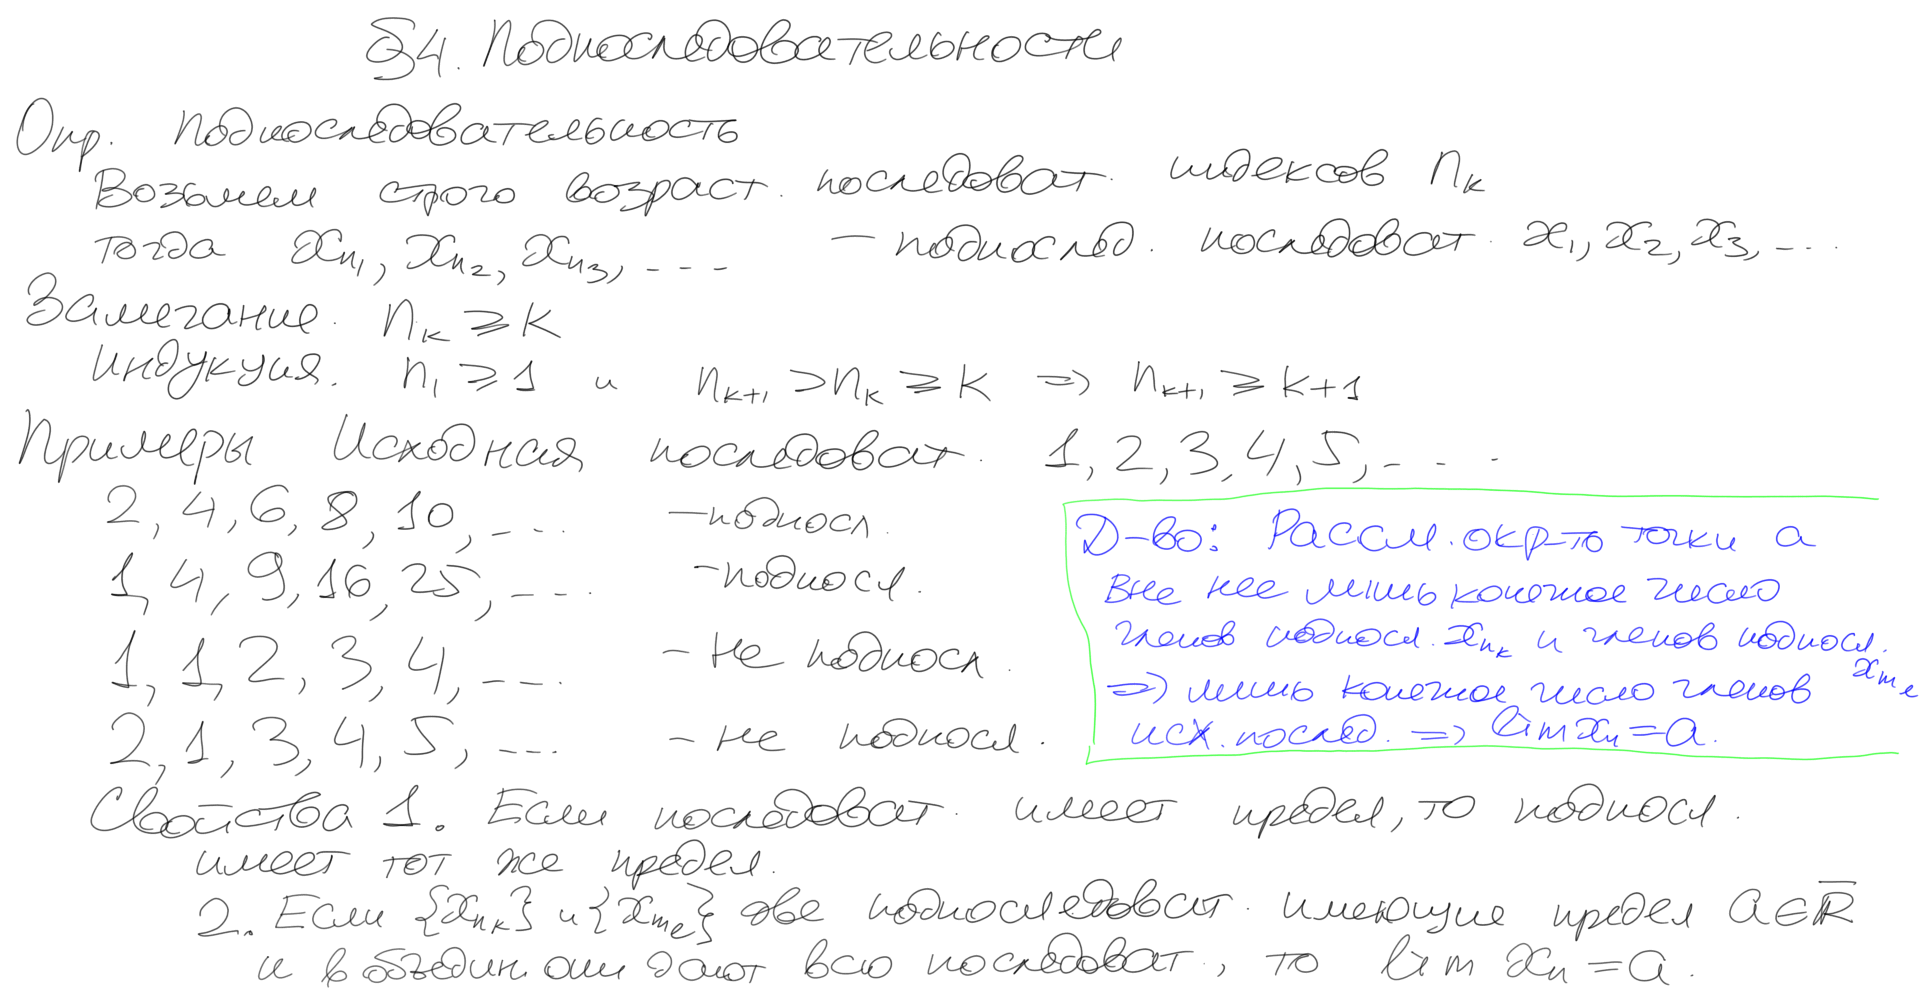 §4. Подпоследовательности
Опр. Подпоследовательность
Возьмем строго возраст. последоват. индексов n_k
тогда x_{n_1}, x_{n_2}, x_{n_3}, ... – подпослед. последоват. x_1, x_2, x_3, ...
Замечание. n_k ⩾ k
Индукция. n_1 ⩾ 1 и n_{k+1} > n_k ⩾ k ⇒ n_{k+1} ⩾ k+1
Примеры Исходная последоват. 1, 2, 3, 4, 5, ...
2, 4, 6, 8, 10, ... – подпосл.
1, 4, 9, 16, 25, ... – подпосл.
1, 1, 2, 3, 4, ... – не подпосл.
2, 1, 3, 4, 5, ... – не подпосл.
Д-во: Рассм. окр-то точки a
вне нее лишь конечное число
членов подпосл. x_{n_k} и членов подпосл. x_{m_l}
⇒ лишь конечное число членов
исх. послед. ⇒ lim x_n = a.
Свойства 1. Если последоват. имеет предел, то подпосл.
имеет тот же предел.
2. Если {x_{n_k}} и {x_{m_l}} две подпоследоват. имеющие предел a ∈ R̅
и в объедин. они дают всю последоват., то lim x_n = a.